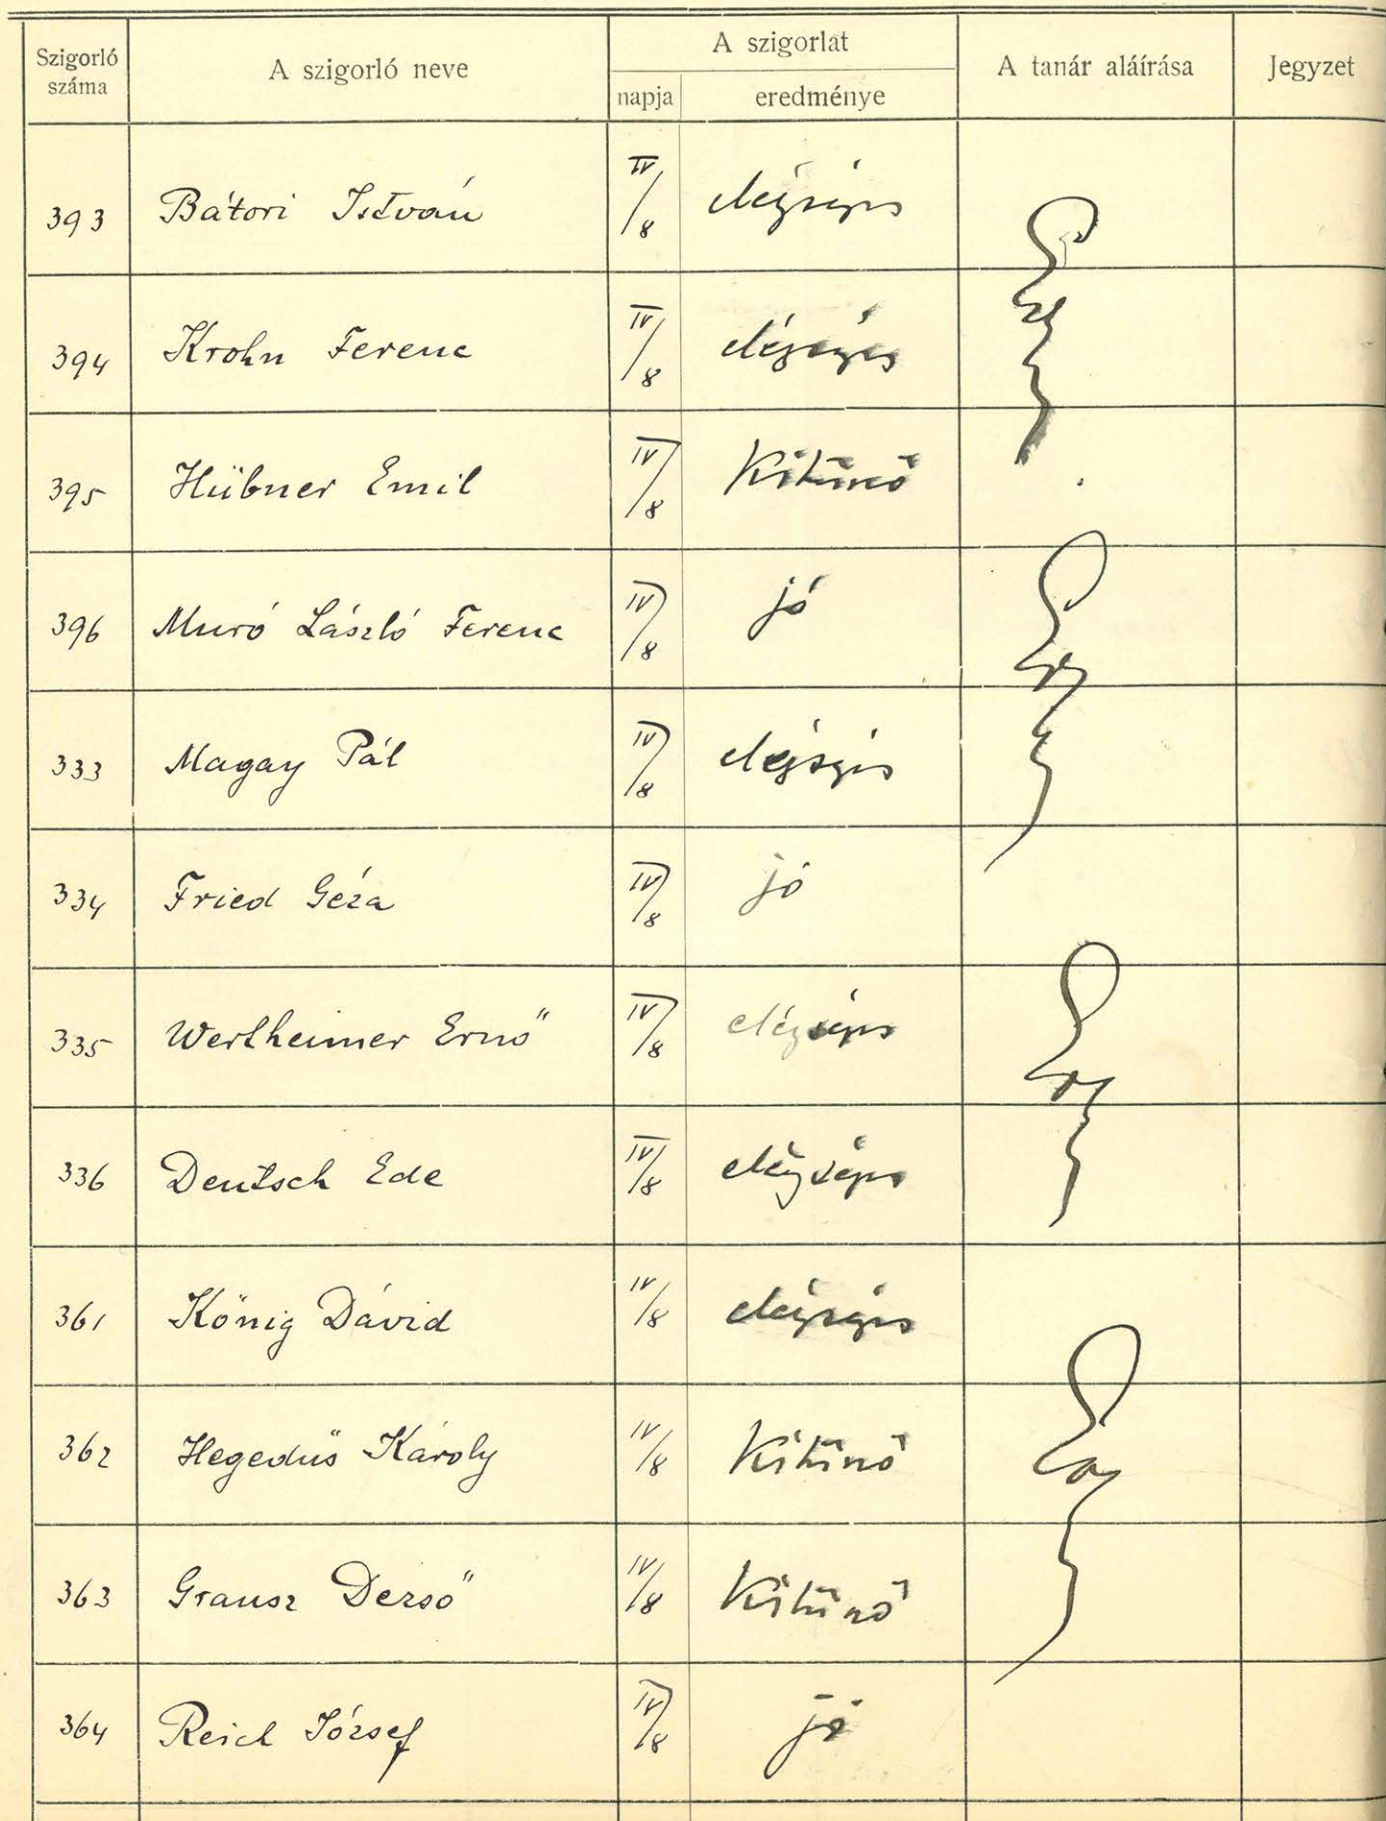 Szigorló száma A szigorló neve A szigorlat napja eredménye A tanár aláírása Jegyzet
393 Bátori István IV/8 elégséges
394 Krohn Ferenc IV/8 elégséges
395 Hübner Emil IV/8 Kitünő
396 Muró László Ferenc IV/8 jó
333 Magay Pál IV/8 elégséges
334 Fried Géza IV/8 jó
335 Wertheimer Ernő IV/8 elégséges
336 Deutsch Ede IV/8 elégséges
361 König Dávid IV/8 elégséges
362 Hegedüs Károly IV/8 Kitünő
363 Grausz Dezső IV/8 Kitünő
364 Reich József IV/8 jó